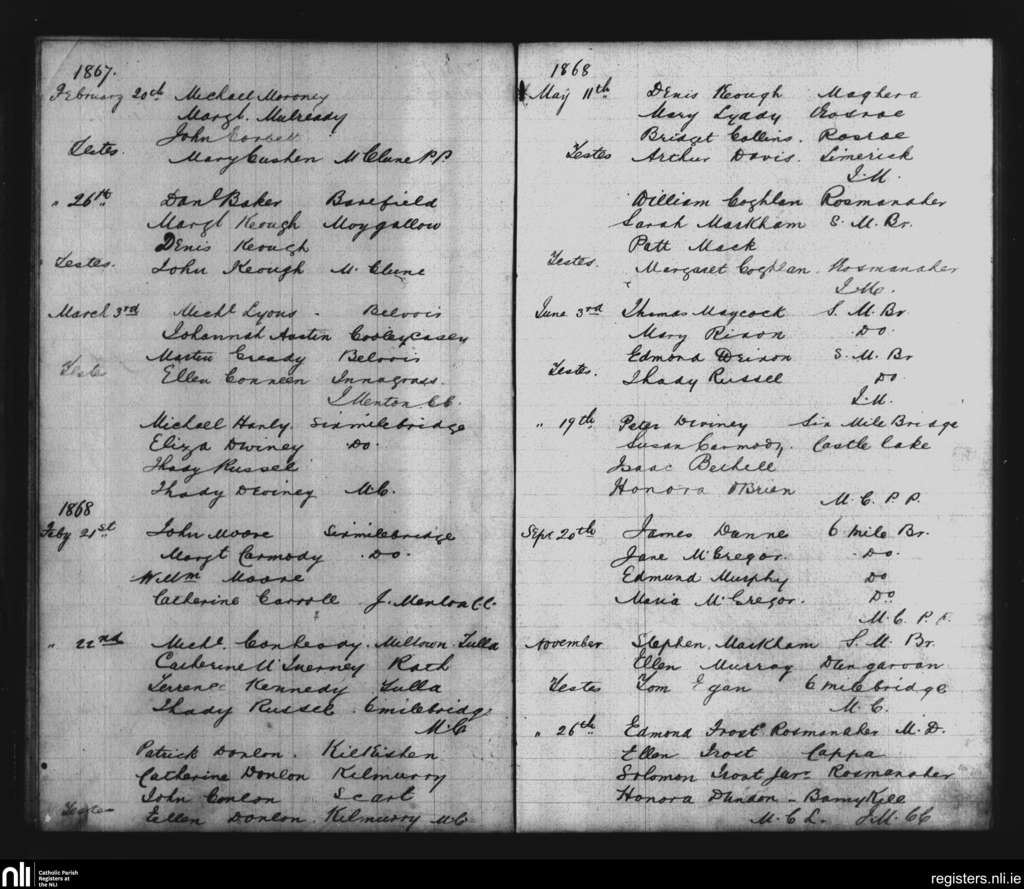 1867.
February 20th Michael Moroney
Margt. Mulready
John Corbett
Testes. Mary Cushen M Clune PP
" 26th Danl Baker Barefield
Margt Keough Moygallow
Denis Keough
Testes. John Keough M. Clune
March 3rd Michl Lyons - Belvoir
Johannah Austin Cooleycasey
Martin Cready Belvoir
Teste Ellen Conneen Innagrass.
J Menton CC.
Michael Hanly. Sixmilebridge
Eliza Diviney Do.
Thady Russel
Thady Diviney M.C.
1868
Feby 21st John Moore Sixmilebridge
Margt Carmody Do.
Willm Moore
Catherine Carroll J. Menton C.C.
" 22nd Michl. Conheady. Miltown Tulla
Catherine McInerney Rath
Terrence Kennedy Tulla
Thady Russel. 6milebridge
M.C
Patrick Donlon. Kilkishen
Catherine Donlon Kilmurry
John Conlon Scart
Teste Ellen Donlon. Kilmurry M.C
1868
May 11th Denis Keough Maghera
Mary Lyddy Rosroe
Bridget Collins. Rosroe
Testes Arthur Davis. Limerick
J.M.
William Coghlan Rosmanaher
Sarah Markham S. M. Br.
Patt Mack
Testes. Margaret Coghlan. Rosmanaher
J.M.
June 3rd Thomas Maycock S. M. Br
Mary Rixon Do.
Edmond S. M. Br
Testes. Thady Russell Do
J.M.
" 19th Peter Diviney Six Mile Bridge
Susan Carmody. Castle Lake
Isaac Bethell
Honora O'Brien
M. C. P. P.
Sept 20th James Danne 6 Mile Br.
Jane McGregor. Do.
Edmund Murphy Do
Maria McGregor. Do
M. C. P. P.
November Stephen. Markham S. M. Br.
Ellen Murray Dungarvan
Testes Tom Egan 6 milebridge
M. C.
" 26th Edmond Frost Rosmanaher M. D.
Ellen Frost Cappa
Solomon Frost Junr Rosmanaher
Honora Dundon -
M. C L. J. M. CC
nli Catholic Parish
Registers at
the NLI
registers.nli.ie